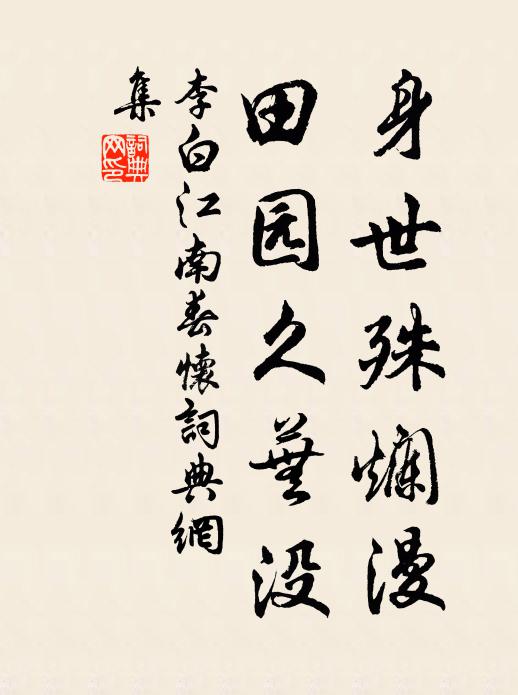 身世殊爛漫
田园久蕪没
李白江南春懷詞典網
集
詞典
网印